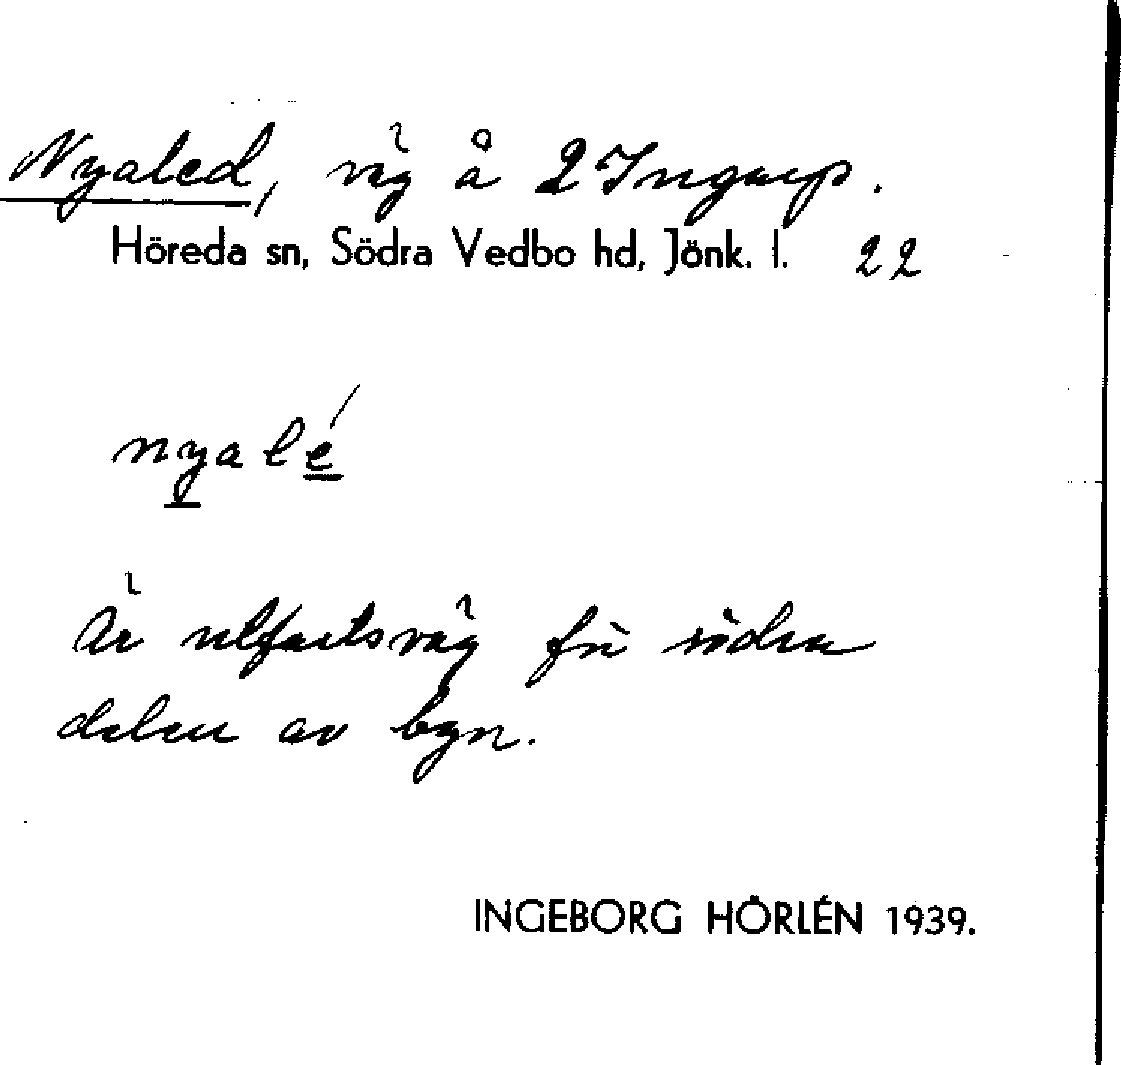 Nyaled, väg å 2 Ingarp.
Höreda sn, Södra Vedbo hd, Jönk. l. 22
nyalé
Är utfartsväg för södra
delen av byn.
INGEBORG HÖRLÉN 1939.